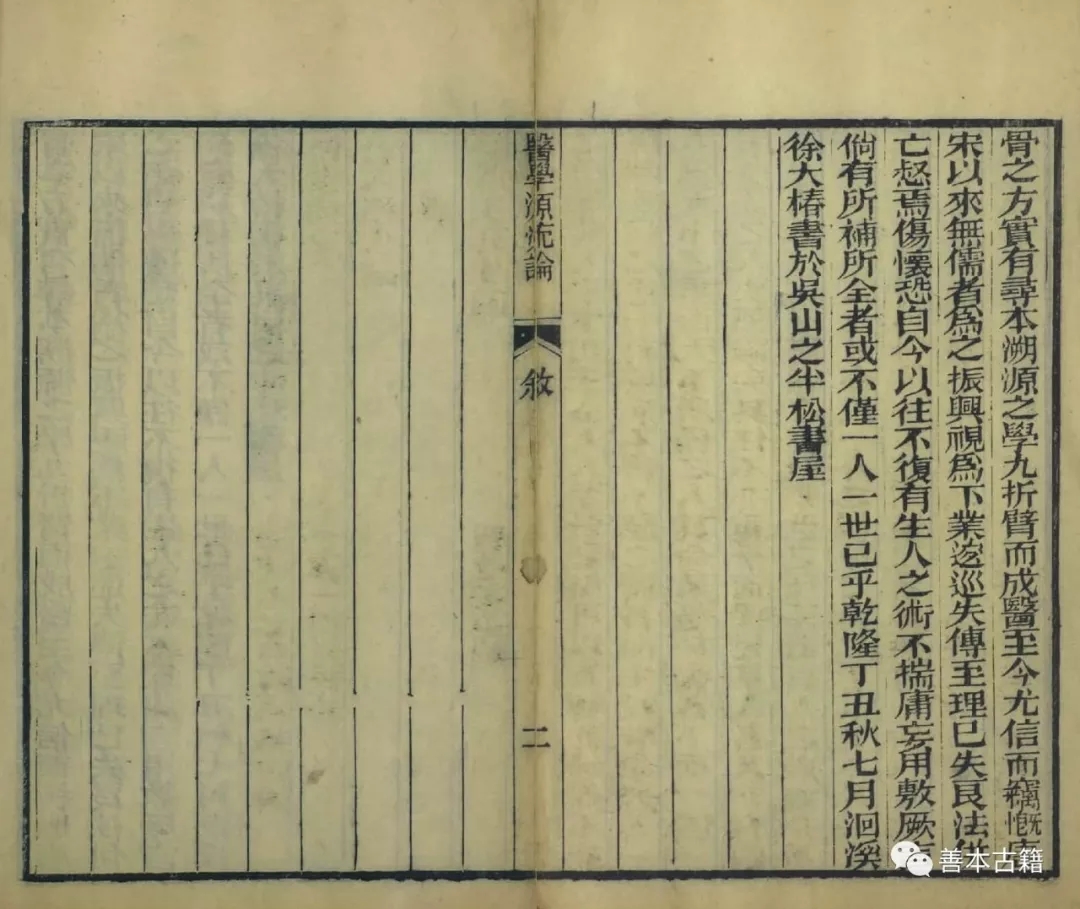 骨之方實有尋本溯源之學九折臂而成醫至今尤信而竊慨唐
宋以來無儒者爲之振興視爲下業逡巡失傳至理已失良法併
亡惄焉傷懷恐自今以往不復有生人之術不揣庸妄用敷厥
倘有所補所全者或不僅一人一世已乎乾隆丁丑秋七月洄溪
徐大椿書於吳山之半松書屋
醫學源流論
敘
二
善本古籍